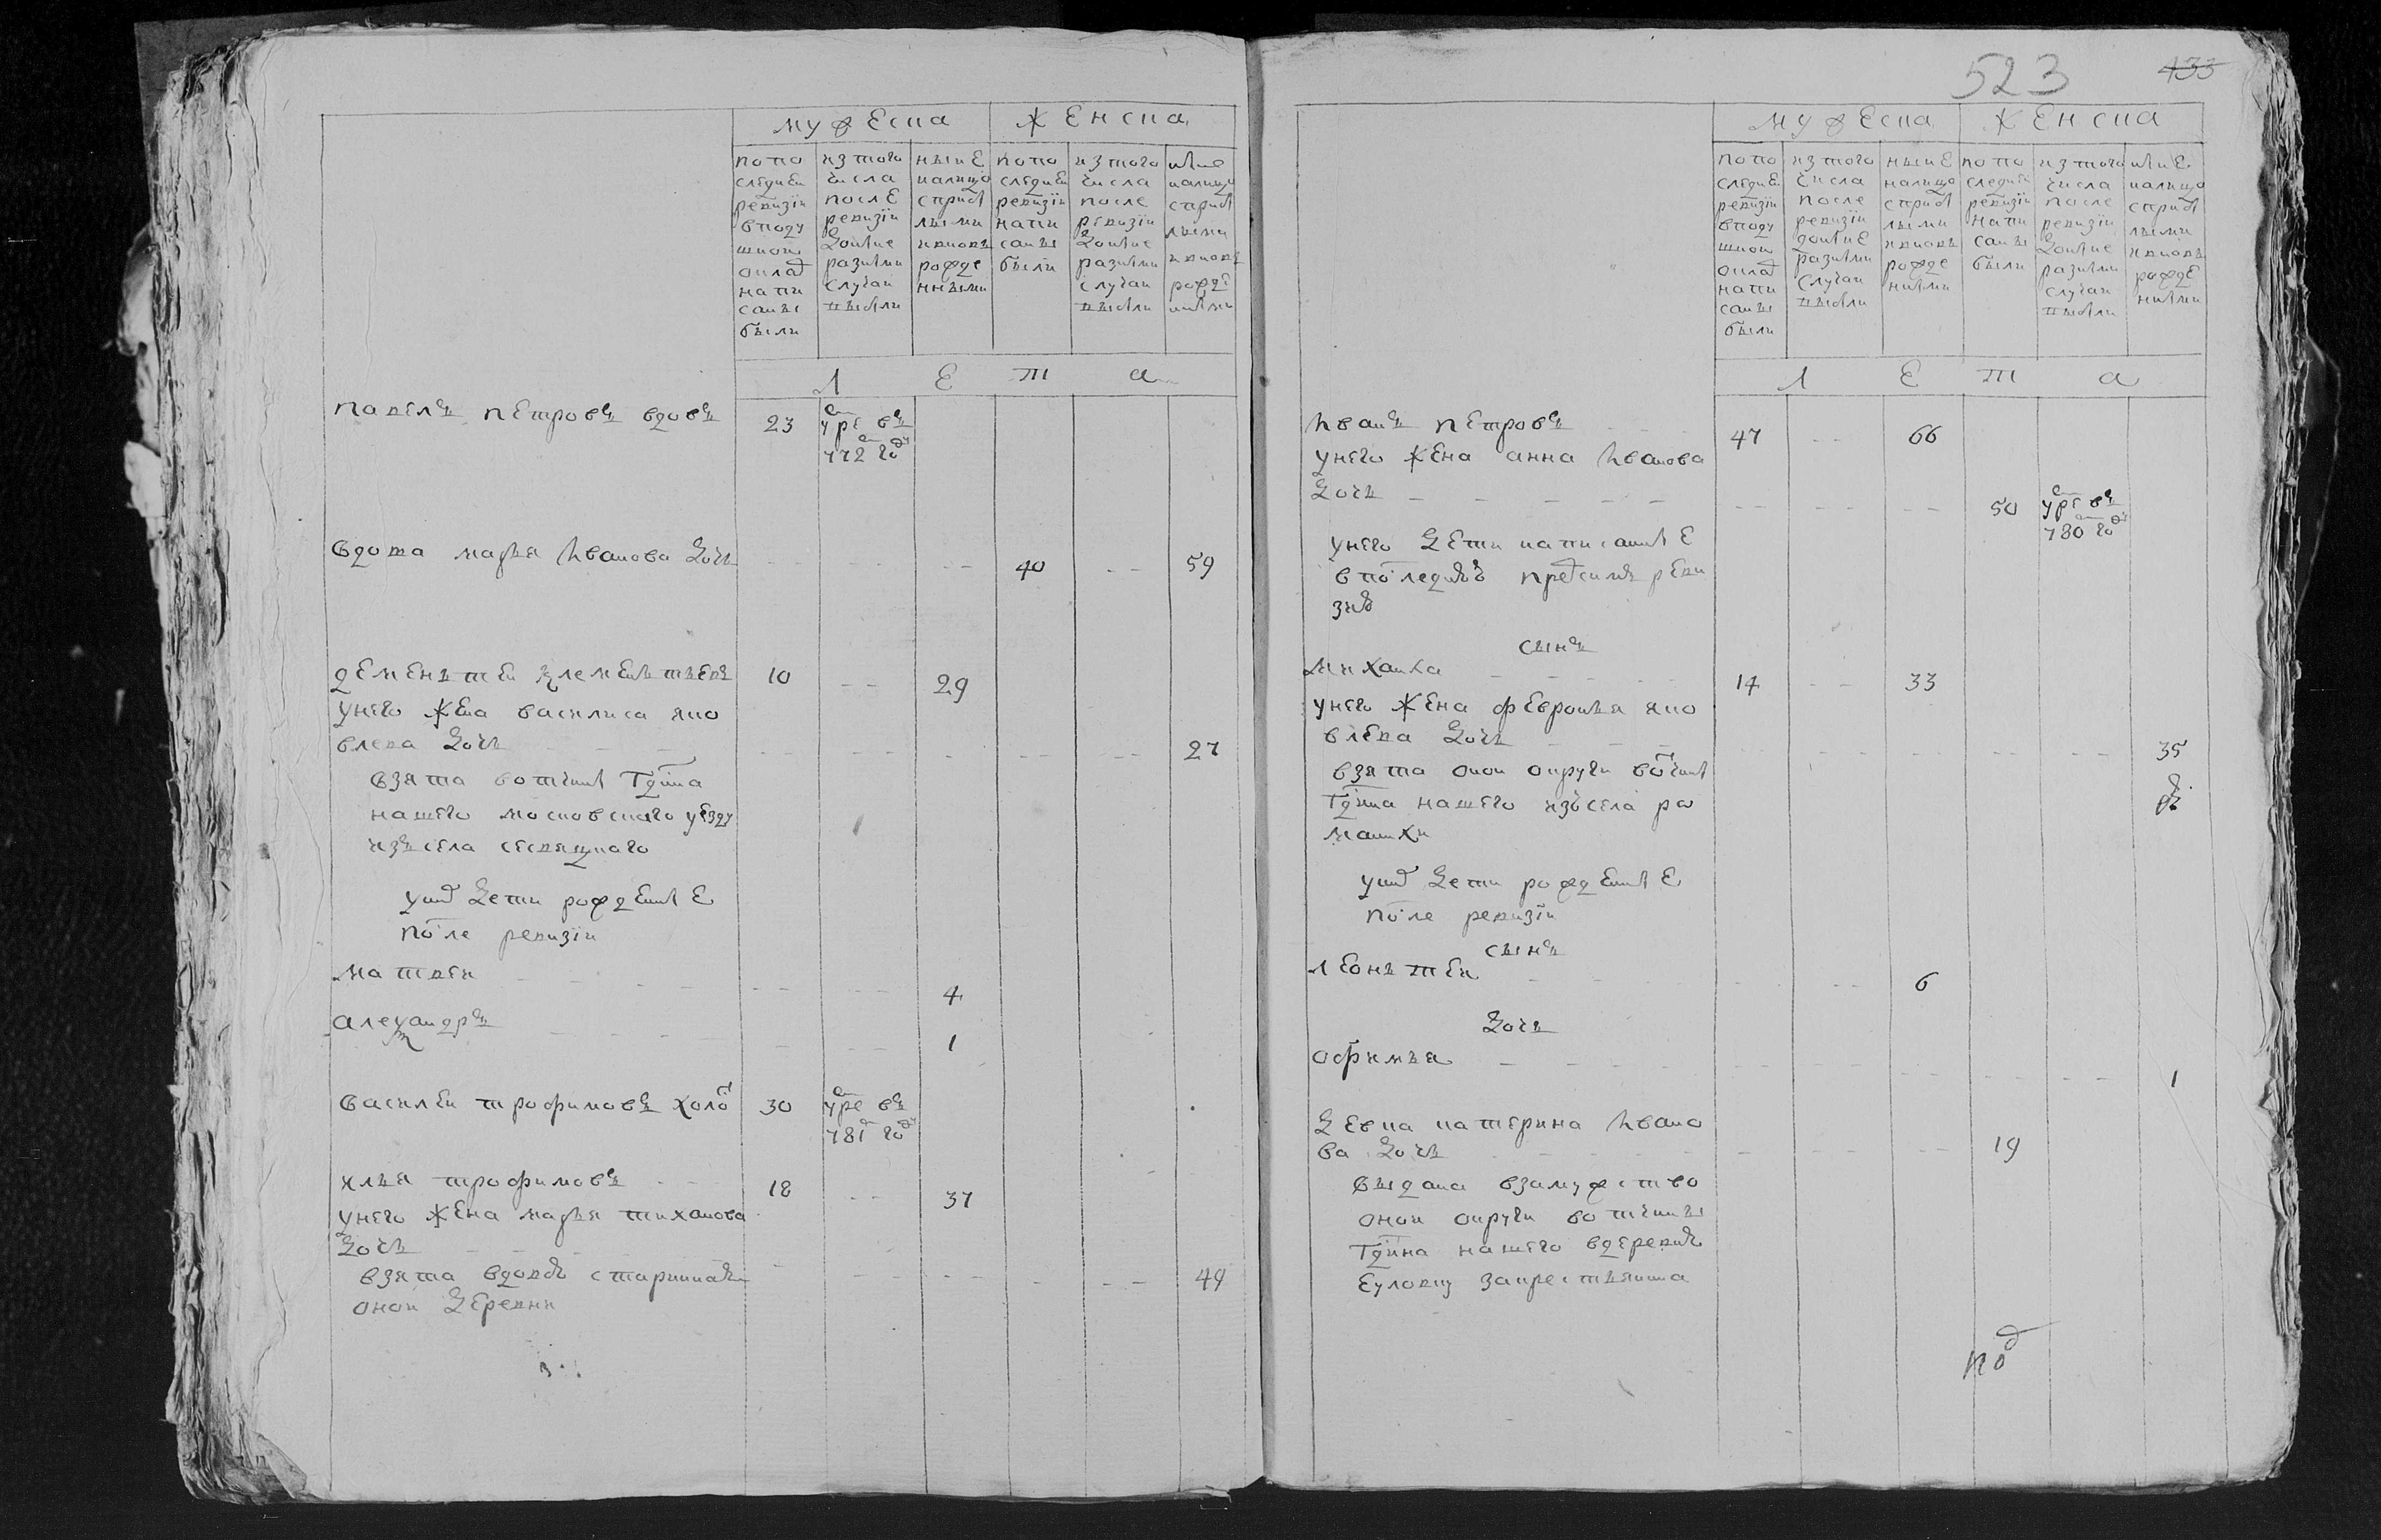 мужеска женска
по по следней ревизiи в поду шном оклад напи саны были
из того числа после ревизiи Зоныне разными случаи выбыли
ныне налицо с прибылыми и вновь рожде нными
по по следней ревизiи напи саны были
из того числа после ревизiи Зоныне разными случаи выбыли
ныне налицо с прибылыми и вновь рожде нными
Л е т а
павелъ петровъ вдовъ 23 умре въ
772 году
вдова марья Иванова Дочь 40 59
дементей клементьевъ 10 29
у него жена василиса яко
влева Дочь 27
взята вотчины Гдина
нашего московского уезду
изъ села
у них Дети рожденные
после ревизiи
матвеи 4
алеѯандръ 1
василеи трофимовъ холост 30 умре въ
781 году
илья трофимовъ 18 37
у него жена марья тиханова
Дочь
взята вдовою старинная 49
оной Деревни
523 133
мужеска женска
по по следней ревизiи в поду шном оклад напи саны были
из того числа после ревизiи доныне разными случаи выбыли
ныне налицо с прибылыми и вновь рожде ными
по по следней ревизiи напи саны были
из того числа после ревизiи Зоныне разными случаи выбыли
ныне налицо с прибылыми и вновь рожде ными
Л е т а
Иванъ петровъ 47 66
у него жена анна Иванова
Дочь 50 умре въ
780 году
у него Дети написанные
в последней пред сим реви
зии
сынъ
Михаила 14 33
у него жена февронья яко
влева Дочь 35
взята оной округи вотчины
Гдина нашего изъ села ро
машки
у них Дети рожденные
после ревизiи
сынъ
леонтей 6
Дочь
офимья 1
Девка катерина Ивано
ва Дочь 19
выдана в замужство
оной округи вотчины
Гдина нашего в деревню
за крестьянина
под